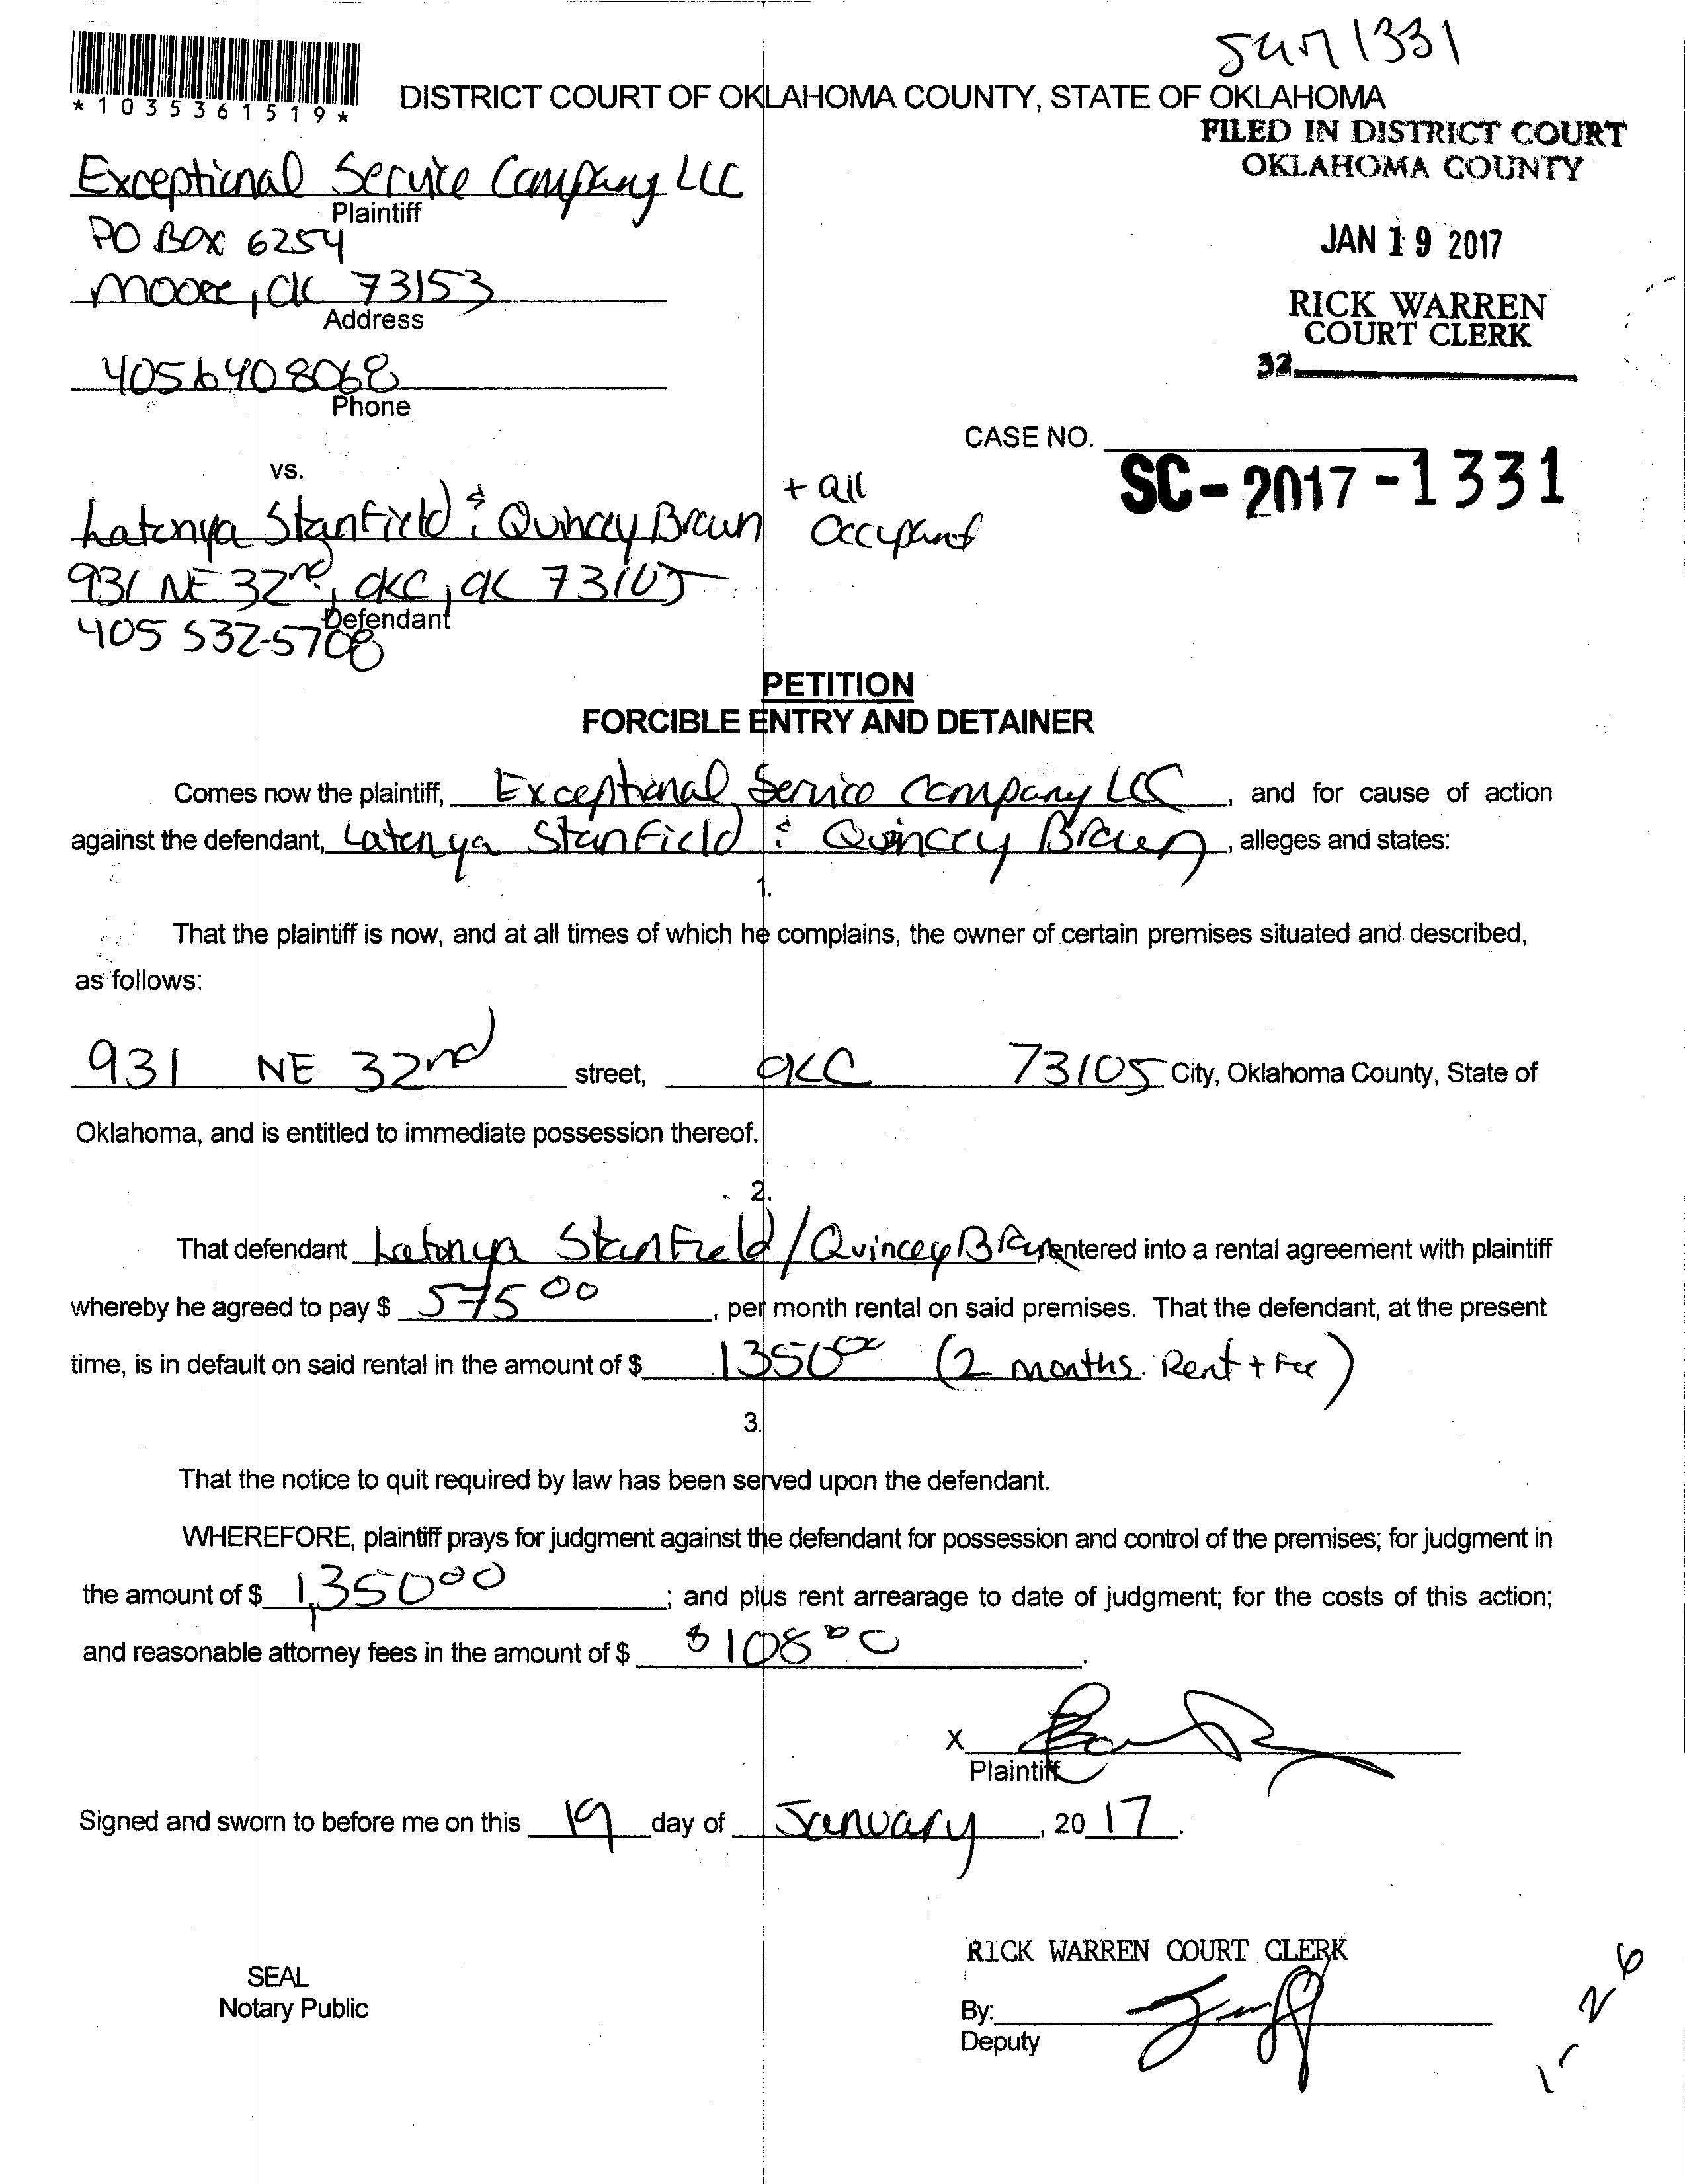 *1035361519*
DISTRICT COURT OF OKLAHOMA COUNTY, STATE OF OKLAHOMA
FILED IN DISTRICT COURT
OKLAHOMA COUNTY
JAN 19 2017
RICK WARREN
COURT CLERK
32
Exceptional Service Company LLC
Plaintiff
PO Box 6254
Moore, OK 73153
Address
4056408068
Phone
CASE NO.
SC-2017-1331
vs.
Latonya Stanfield & Quincey Braun + all
Occupant
931 NE 32nd, OKC, OK 73105
Defendant
405 532-5708
PETITION
FORCIBLE ENTRY AND DETAINER
Comes now the plaintiff, Exceptional Service Company LLC, and for cause of action
against the defendant, Latonya Stanfield & Quincey Braun, alleges and states:
1.
That the plaintiff is now, and at all times of which he complains, the owner of certain premises situated and described,
as follows:
931 NE 32nd street, OKC 73105 City, Oklahoma County, State of
Oklahoma, and is entitled to immediate possession thereof.
2.
That defendant Latonya Stanfield/Quincey Braun entered into a rental agreement with plaintiff
whereby he agreed to pay $ 575 00, per month rental on said premises. That the defendant, at the present
time, is in default on said rental in the amount of $ 1350 00 (2 months Rent + Fee)
3.
That the notice to quit required by law has been served upon the defendant.
WHEREFORE, plaintiff prays for judgment against the defendant for possession and control of the premises; for judgment in
the amount of $ 1,350 00; and plus rent arrearage to date of judgment; for the costs of this action;
and reasonable attorney fees in the amount of $ $108 00.
X
Plaintiff
Signed and sworn to before me on this 19 day of January, 20 17.
RICK WARREN COURT CLERK
SEAL
Notary Public
By:
Deputy
1-26